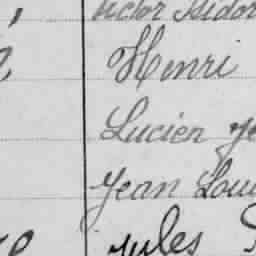 Victor Isidor
Henri
Lucien Je
Jean Loui
Jules